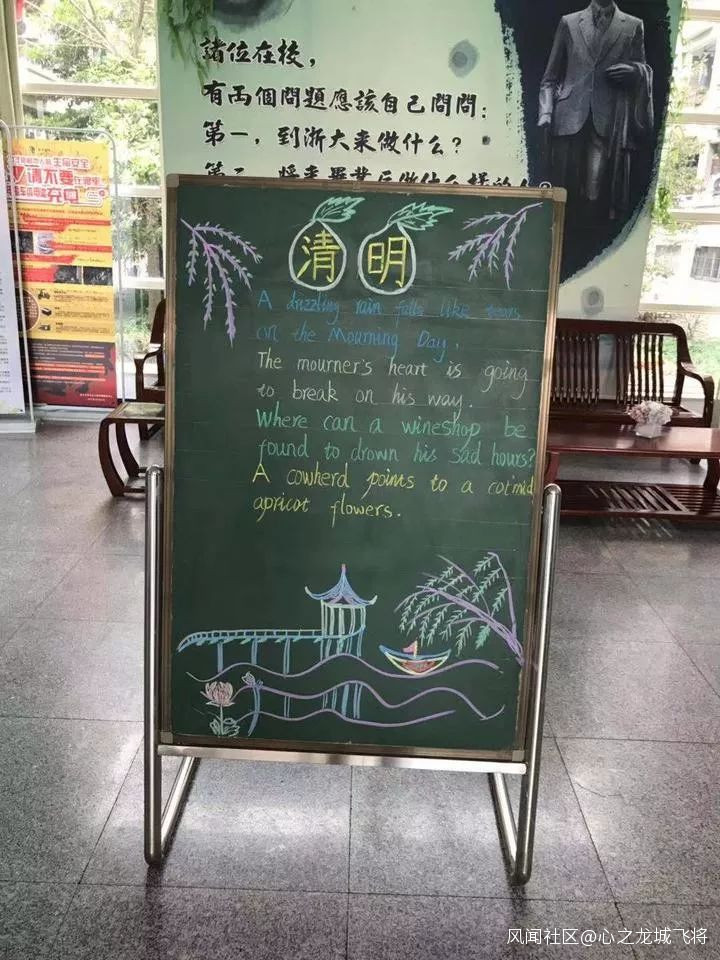 諸位在校，
有兩個問題應該自己問問：
第一，到浙大来做什么？
请不要在楼道
充电
清 明
A drizzling rain falls like tears
on the Mourning Day.
The mourner's heart is going
to break on his way.
Where can a wineshop be
found to drown his sad hours?
A cowherd points to a cot'mid
apricot flowers.
风闻社区@心之龙城飞将